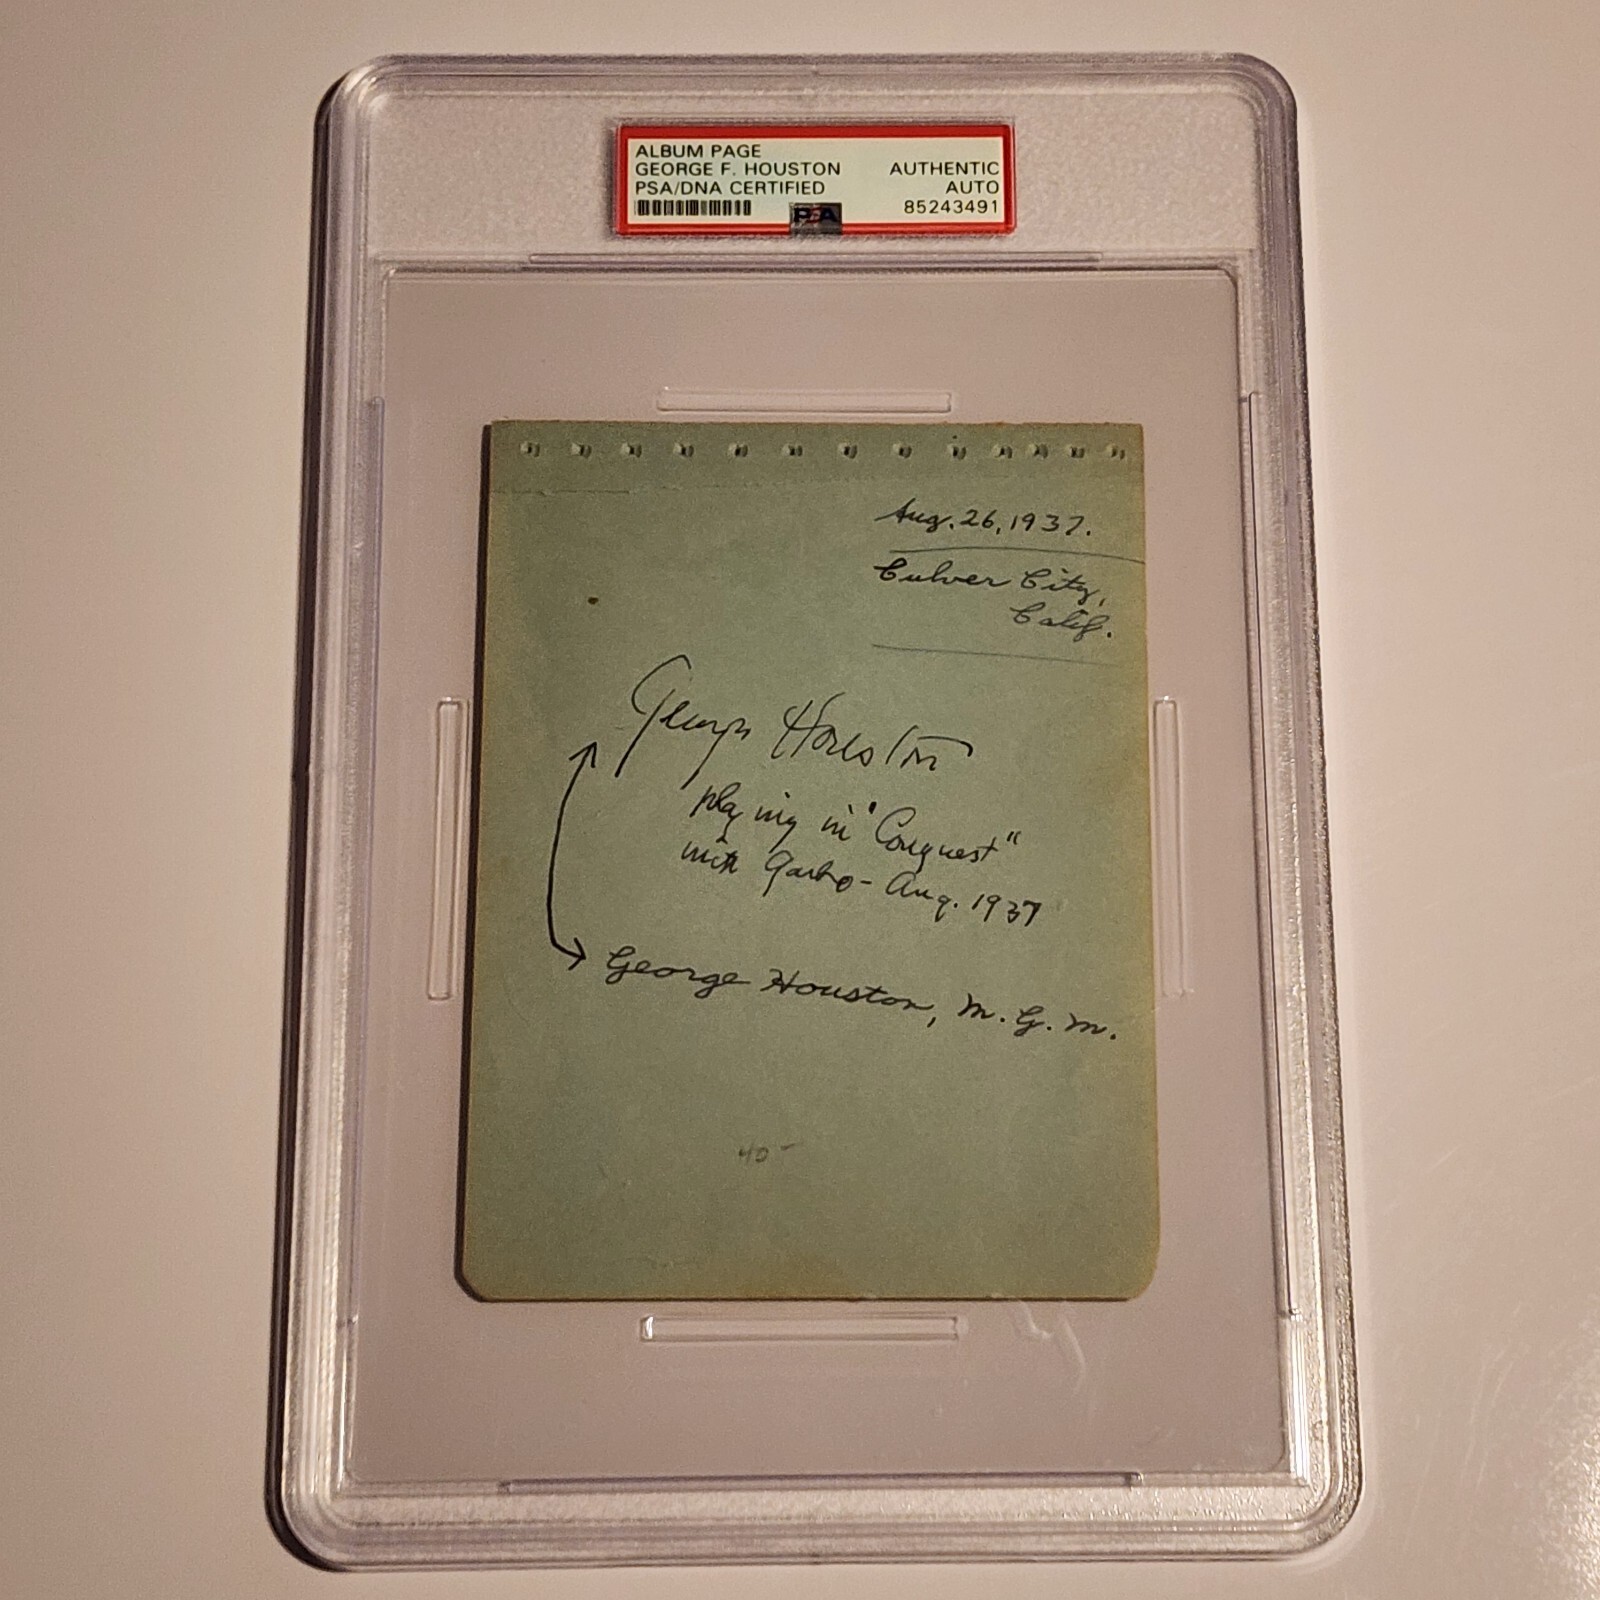 ALBUM PAGE
GEORGE F. HOUSTON AUTHENTIC
PSA/DNA CERTIFIED AUTO
PSA 85243491
Aug. 26, 1937.
Culver City,
Calif.
George Houston
playing in "Conquest"
with Garbo - Aug. 1937
George Houston, M.G.M.
40-